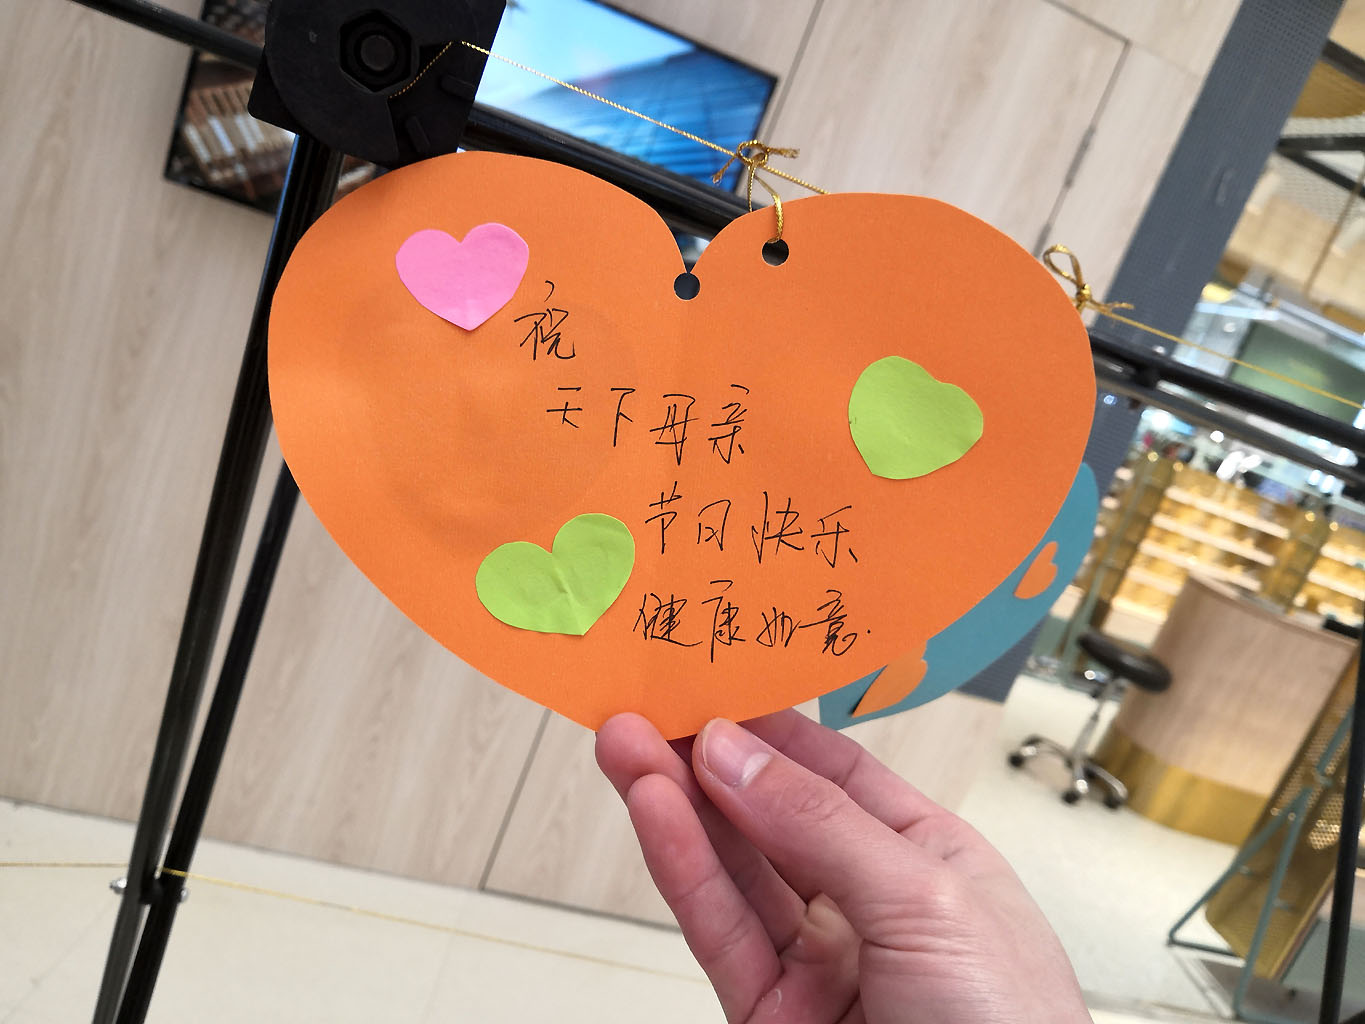 祝
天下母亲
节日快乐
健康如意.